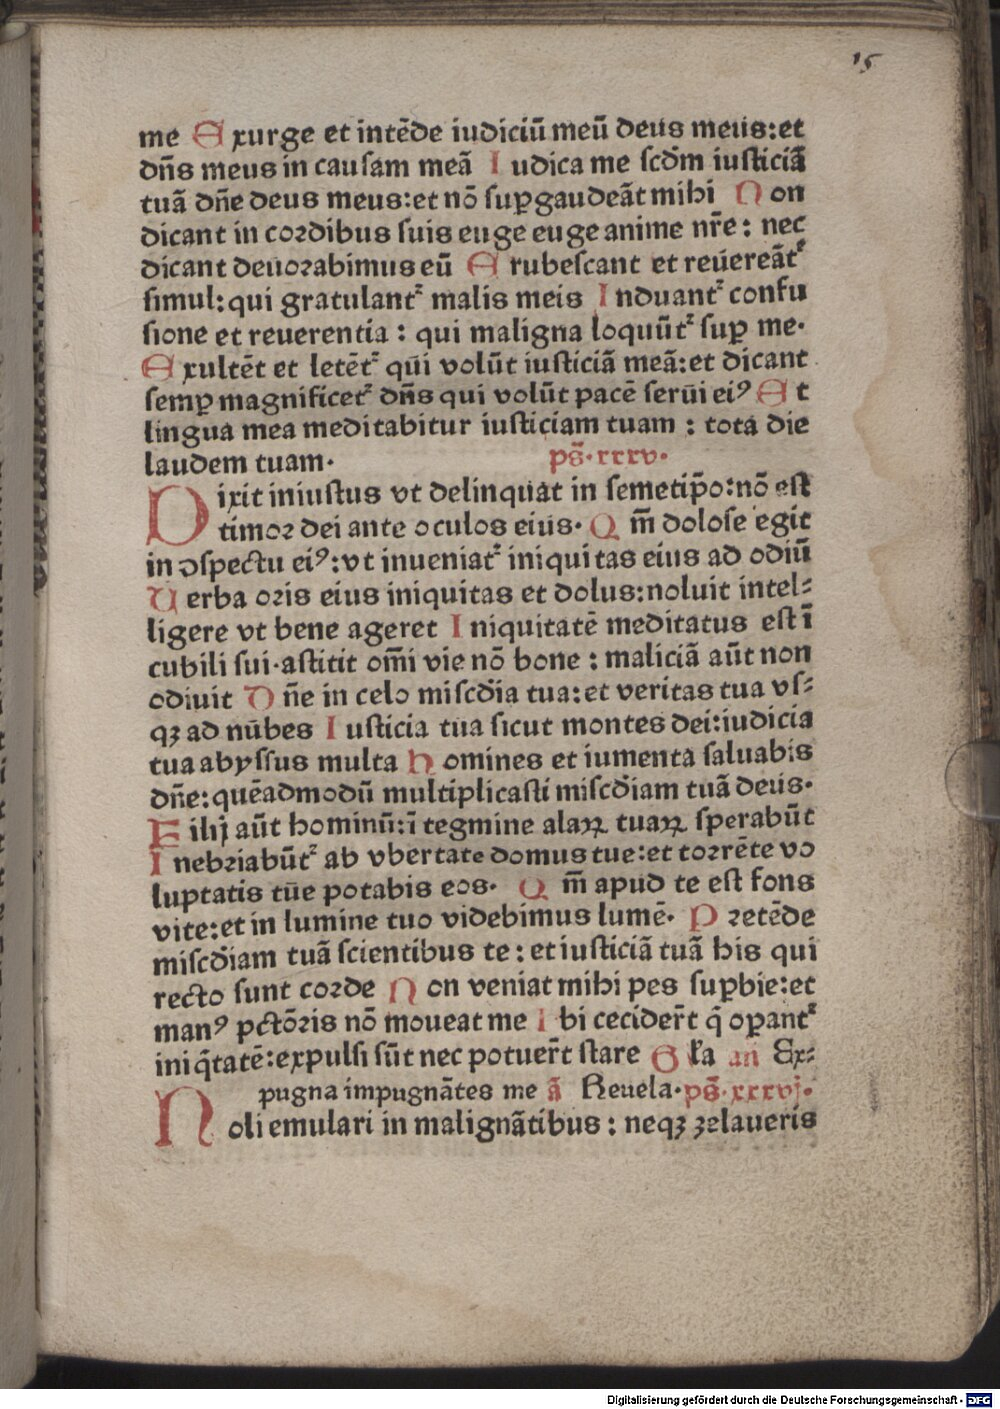 15
me Exurge et intēde iudiciū meū deus meus:et
dn̄s meus in causam meā Iudica me scd̄m iusticiā
tuā dn̄e deus meus:et nō suꝑgaudeāt mihi Non
dicant in coꝛdibus suis euge euge anime nr̄e: nec
dicant deuoꝛabimus eū Erubescant et reuereāt᷑
simul:qui gratulant᷑ malis meis Induant᷑ confu
sione et reuerentia: qui maligna loquūt᷑ suꝑ me.
Exultēt et letēt᷑ qūi volūt iusticiā meā:et dicant
semꝑ magnificet᷑ dn̄s qui volūt pacē serui eiꝰ Et
lingua mea meditabitur iusticiam tuam: tota die
laudem tuam. ps̄.xxxv.
Dixit iniustus vt delinquat in semetip̄o:nō est
timoꝛ dei ante oculos eius. Qm̄ dolose egit
in ꝯspectu eiꝰ:vt inueniat᷑ iniquitas eius ad odiū
Uerba oꝛis eius iniquitas et dolus:noluit intel⸗
ligere vt bene ageret Iniquitatē meditatus est ī
cubili sui.astitit om̄i vie nō bone: maliciā aūt non
odiuit Dn̄e in celo miscd̄ia tua:et veritas tua vs⸗
qꝫ ad nūbes Iusticia tua sicut montes dei:iudicia
tua abyssus multa Homines et iumenta saluabis
dn̄e:quēadmodū multiplicasti miscd̄iam tuā deus.
Filij aūt hominū:ī tegmine alaꝝ tuaꝝ sperabūt
Inebꝛiabūt᷑ ab vbertate domus tue:et toꝛrēte vo
luptatis tūe potabis eos. Qm̄ apud te est fons
vite:et in lumine tuo videbimus lumē. Pꝛetēde
miscd̄iam tuā scientibus te: et iusticiā tuā his qui
recto sunt coꝛde Non veniat mihi pes suꝑbie:et
manꝰ pctōꝛis nō moueat me Ibi cecider̄t q̄ oꝑant᷑
iniq̄tatē:expulsi sūt nec potuer̄t stare Gl̄a an̄ Ex⸗
pugna impugnātes me ā Reuela.ps̄.xxxvj.
Noli emulari in malignātibus: neqꝫ ꝫelaueris
Digitalisierung gefördert durch die Deutsche Forschungsgemeinschaft - DFG